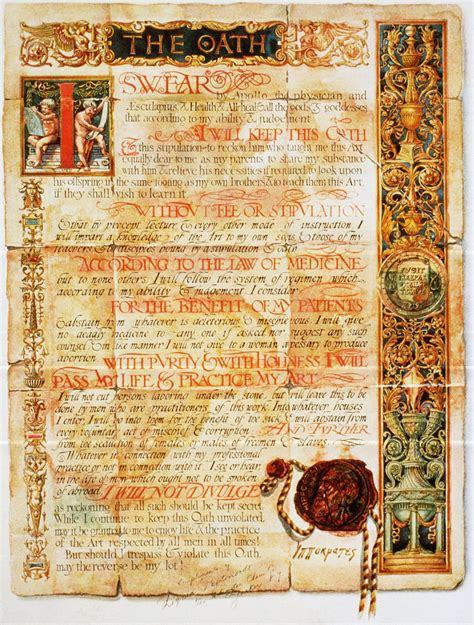 THE OATH
I SWEAR
by Apollo the physician and
Æsculapius, & Health & All-heal & all the gods & goddesses
that according to my ability & judgement
I WILL KEEP THIS OATH
& this stipulation-to reckon him who taught me this Art
equally dear to me as my parents to share my substance
with him & relieve his necessities if required to look upon
his offspring in the same footing as my own brothers & to teach them this Art,
if they shall wish to learn it.
WITHOUT FEE OR STIPULATION
& that by precept lecture & every other mode of instruction I
will impart a knowledge of the Art to my own sons & those of my
teachers
ACCORDING TO THE LAW OF MEDICINE
but to none others I will follow the system of regimen which
according to my ability & judgement I consider
FOR THE BENEFIT OF MY PATIENTS
& abstain from whatever is deleterious & mischievous I will give
no deadly medicine to any one if asked nor suggest any such
counsel & in like manner I will not give to a woman a pessary to produce
abortion
WITH PVRITY & WITH HOLINESS I WILL
PASS MY LIFE & PRACTICE MY ART
I will not cut persons laboring under the stone, but will leave this to be
done by men who are practitioners of this work. Into whatever houses
I enter, I will go into them for the benefit of the sick & will abstain from
every voluntary act of mischief & corruption AND FURTHER
from the seduction of females or males of freemen & slaves
Whatever in connection with my professional
practice or not in connection with it I see or hear
in the life of men which ought not to be spoken
of abroad I WILL NOT DIVULGE
as reckoning that all such should be kept secret.
While I continue to keep this Oath unviolated
may it be granted to me to enjoy life & the practice
of the Art respected by all men in all times!
But should I trespass & violate this Oath,
may the reverse be my lot!